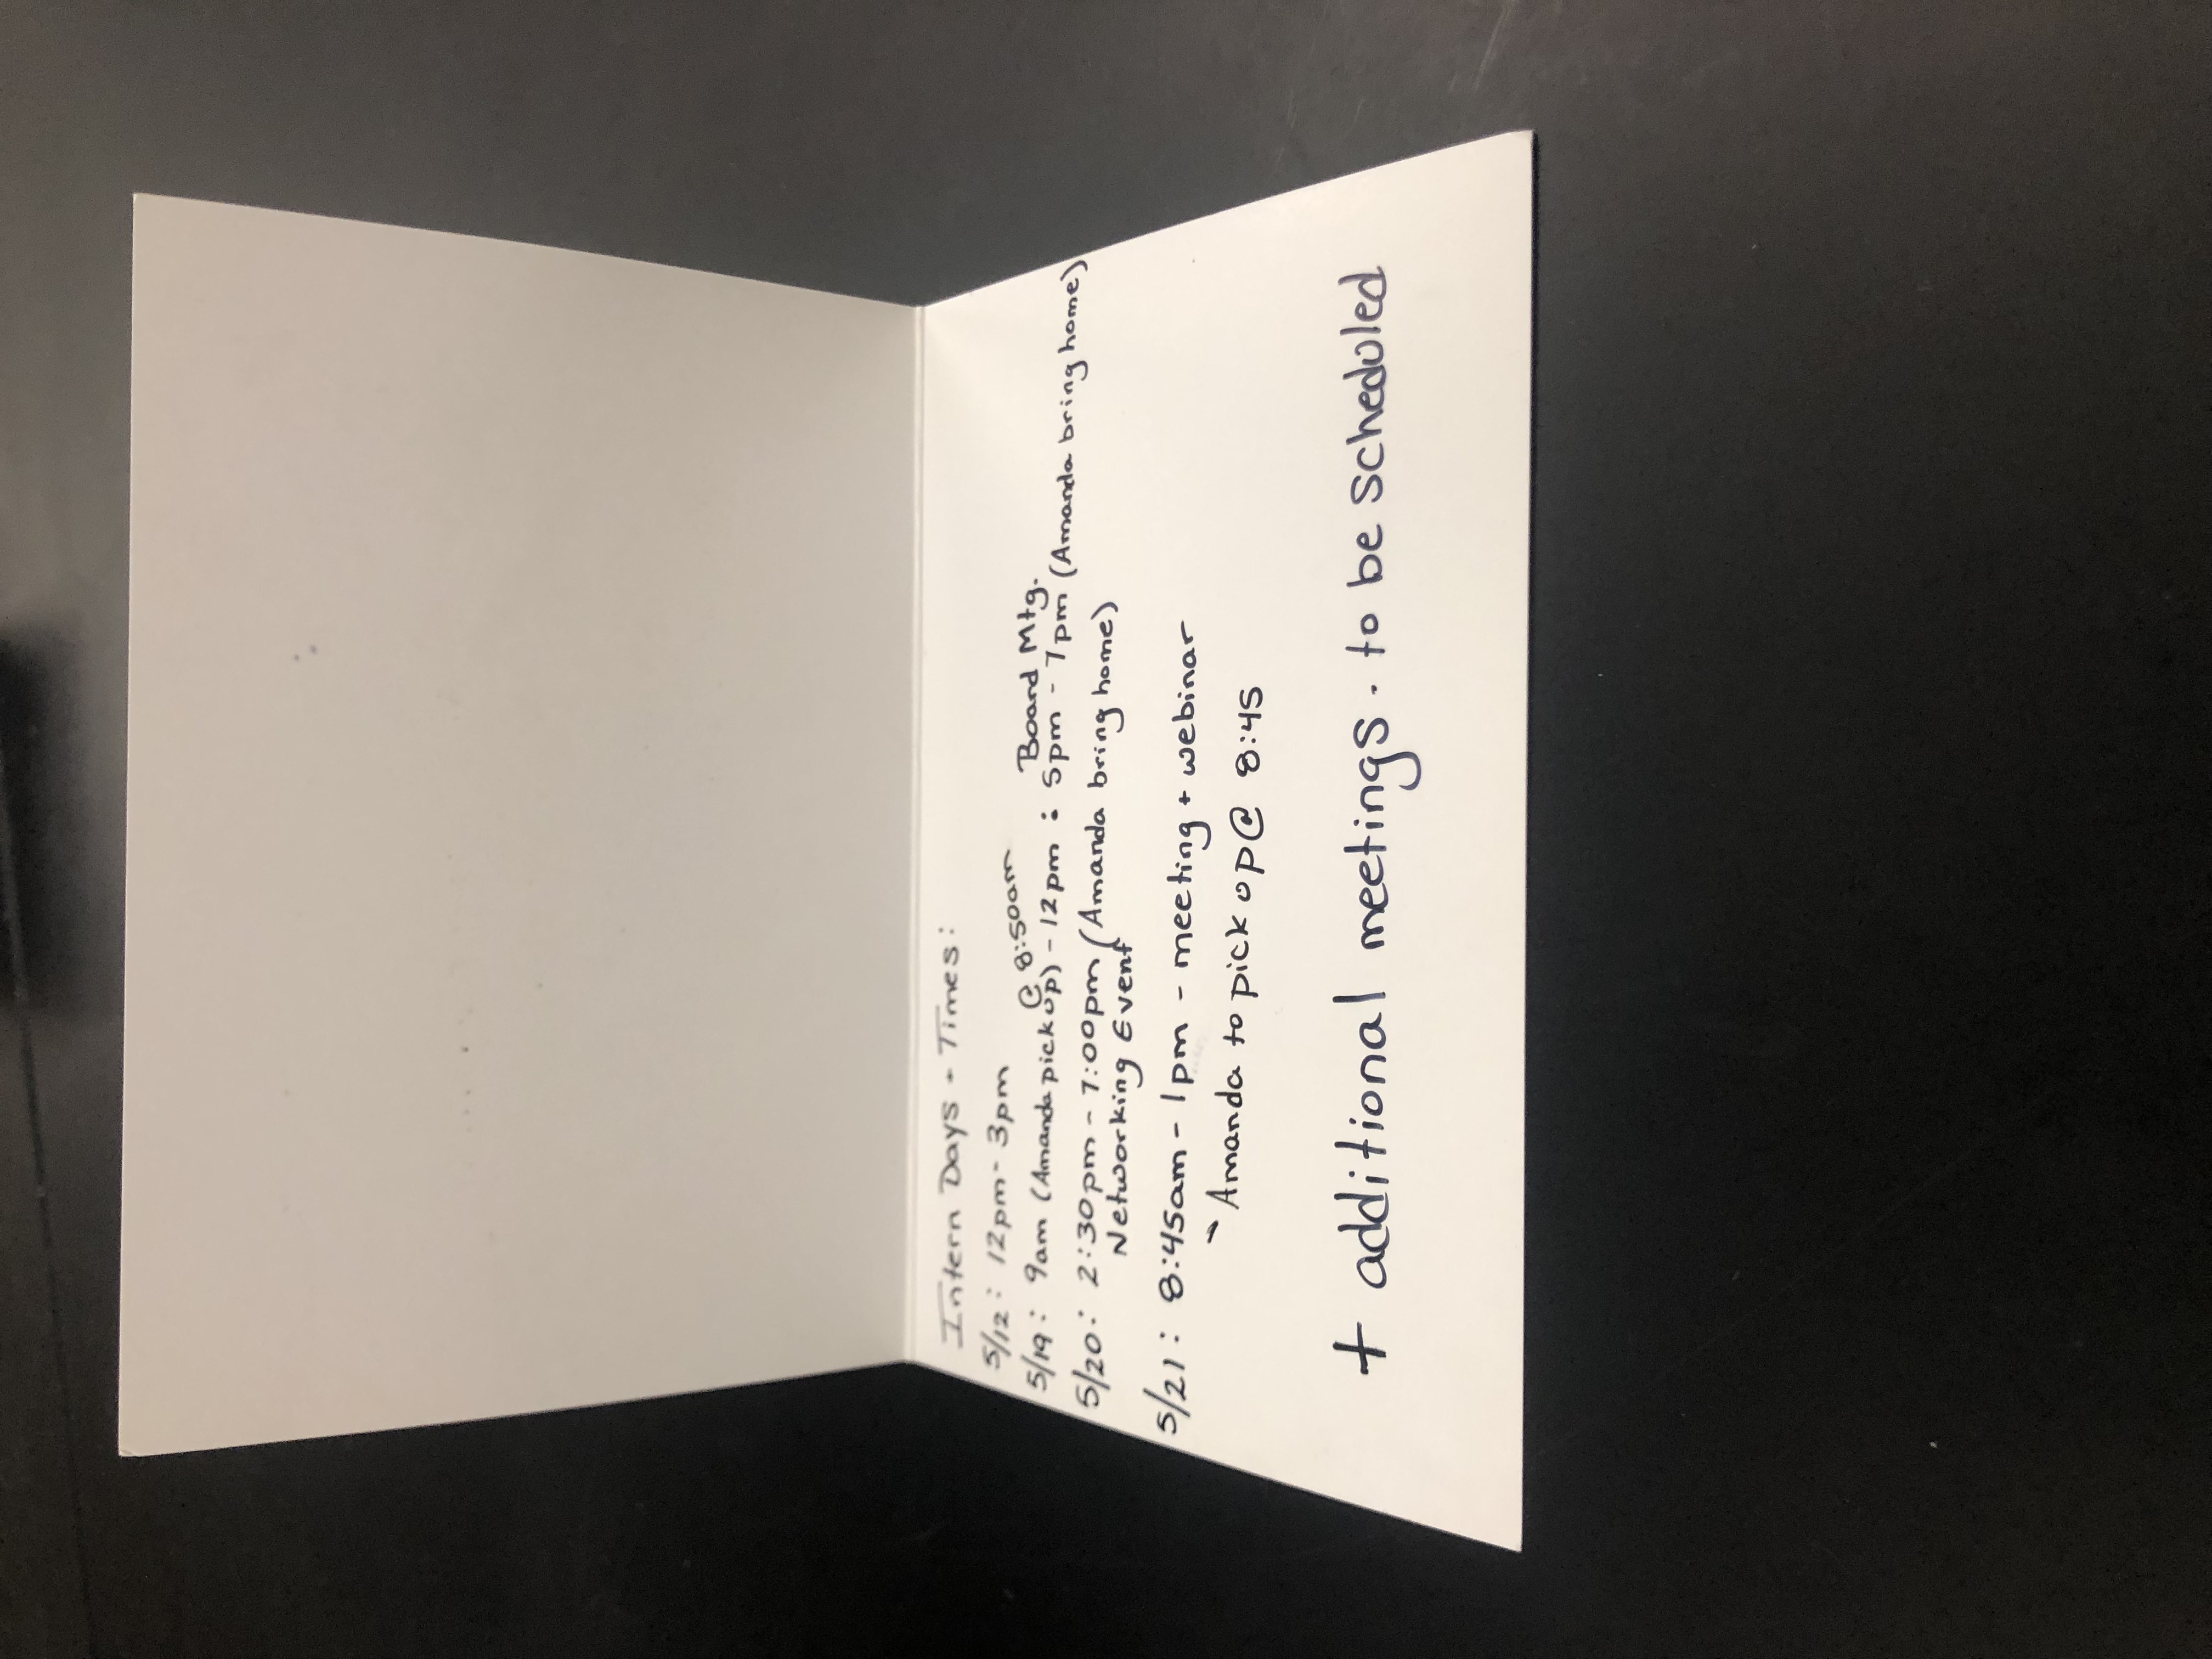 Intern Days + Times:
5/12: 12pm - 3pm
@ 8:50am
Board Mtg.
5/19: 9am (Amanda pick up) - 12pm : 5pm - 7pm (Amanda bring home)
5/20: 2:30pm - 7:00pm (Amanda bring home)
Networking Event
5/21: 8:45am - 1pm - meeting + webinar
Amanda to pick up @ 8:45
+ additional meetings. to be scheduled